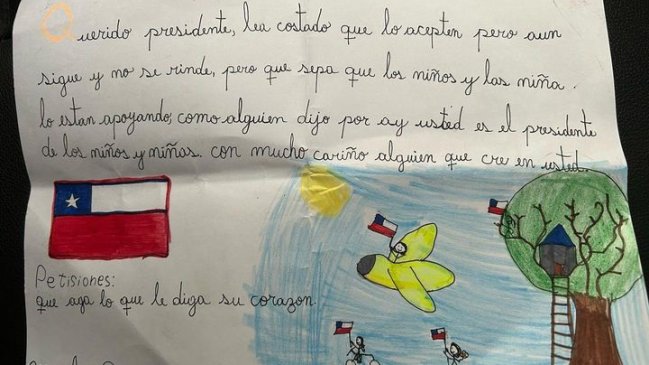 Querido presidente, lea costado que lo acepten pero aun
sigue y no se rinde, pero que sepa que los niños y las niña.
lo estan apoyando, como alguien dijo por ay usted es el presidente
de los niños y niñas. con mucho cariño alguien que cre en usted.
Petisiones:
que aga lo que le diga su corazon